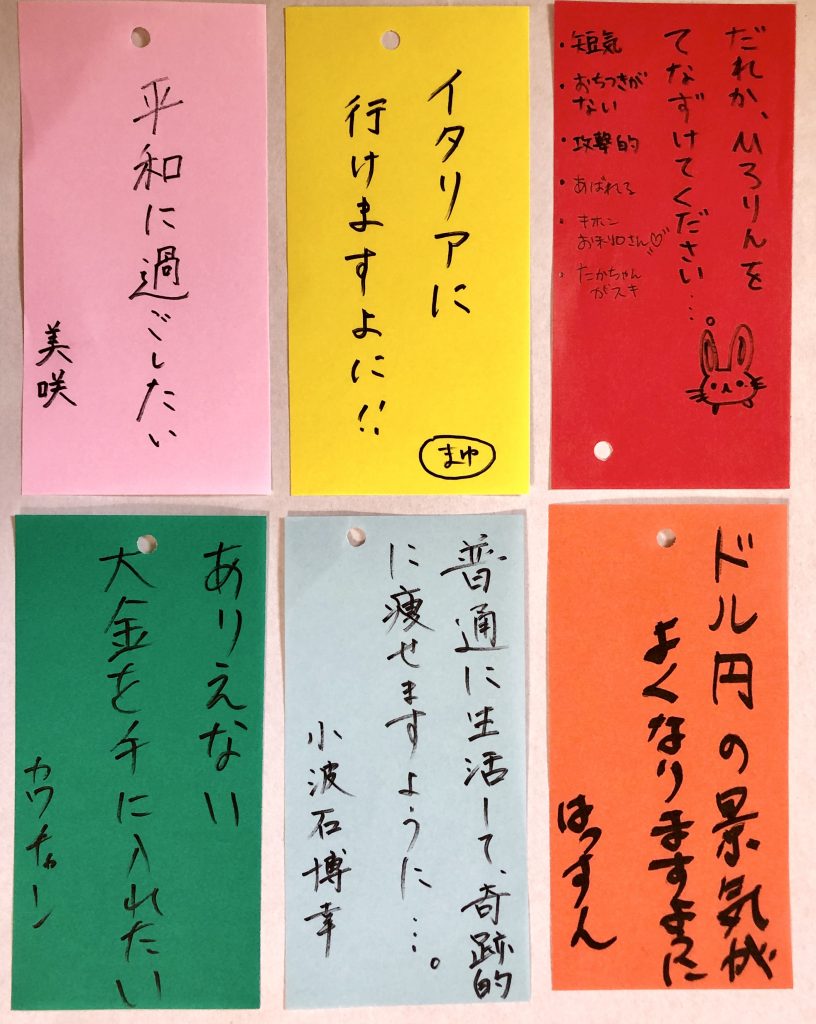 平和に過ごしたい
美咲
イタリアに
行けますよに!!
まゆ
だれか、ひろりんを
てなずけてください…。
・短気
・おちつきが
ない
・攻撃的
・あばれる
・キホン
お利口さん♡
・たかちゃん
がスキ
ありえない
大金を手に入れたい
カワチャン
普通に生活して、奇跡的
に痩せますように…。
小波石博幸
ドル円の景気が
よくなりますように
はっすん